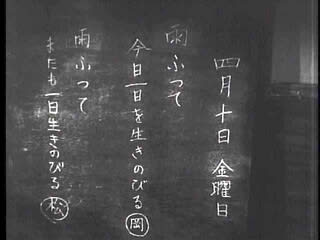 四月十日 金曜日
雨ふって
今日一日を生きのびる 岡
雨ふって
またも一日生きのびる 松